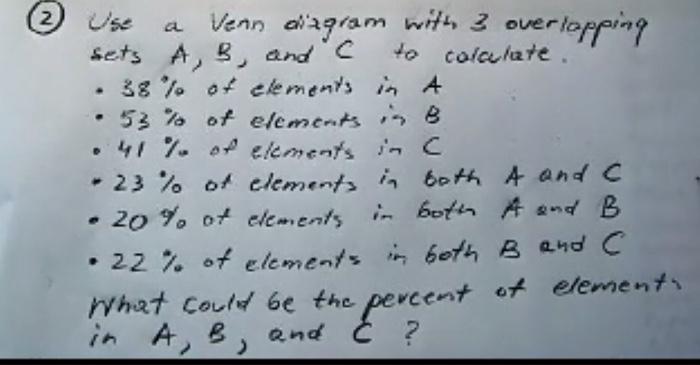 ② Use a Venn diagram with 3 overlapping
sets A, B, and C to calculate.
• 38 % of elements in A
• 53 % of elements in B
• 41 % of elements in C
• 23 % of elements in both A and C
• 20 % of elements in both A and B
• 22 % of elements in both B and C
What could be the percent of elements
in A, B, and C ?